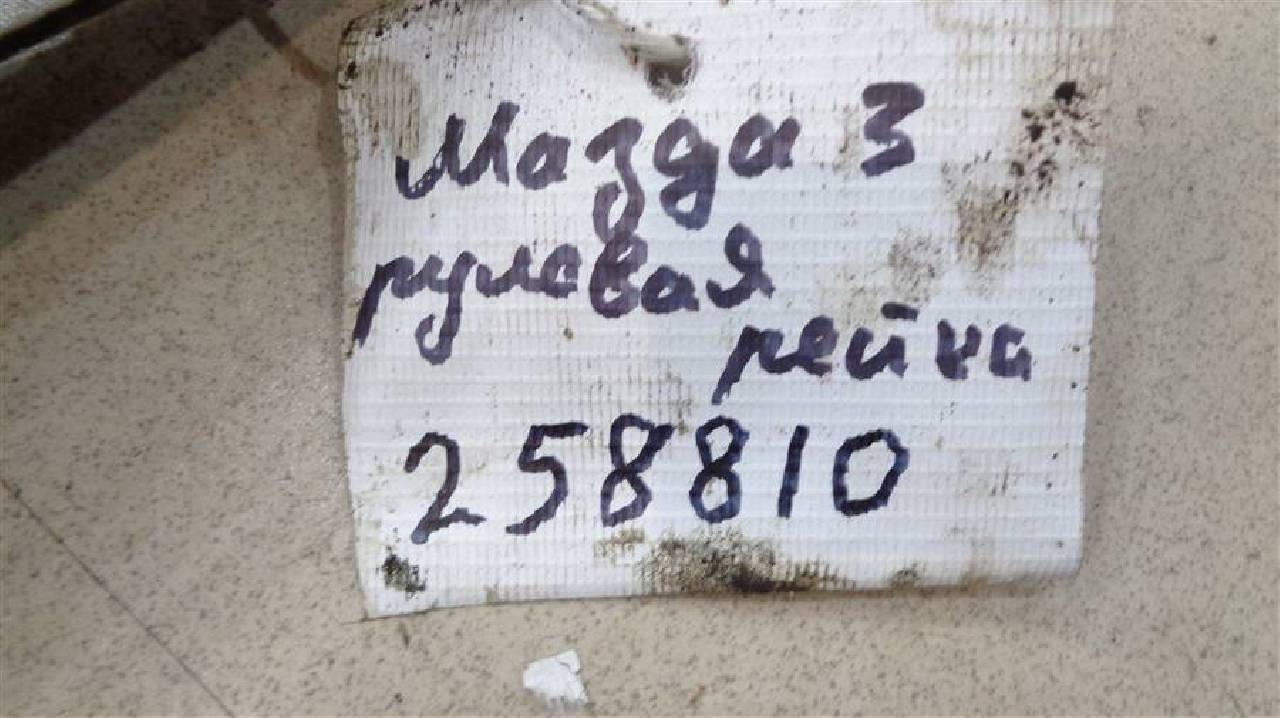 Мазда 3
рулевая
рейка
258810